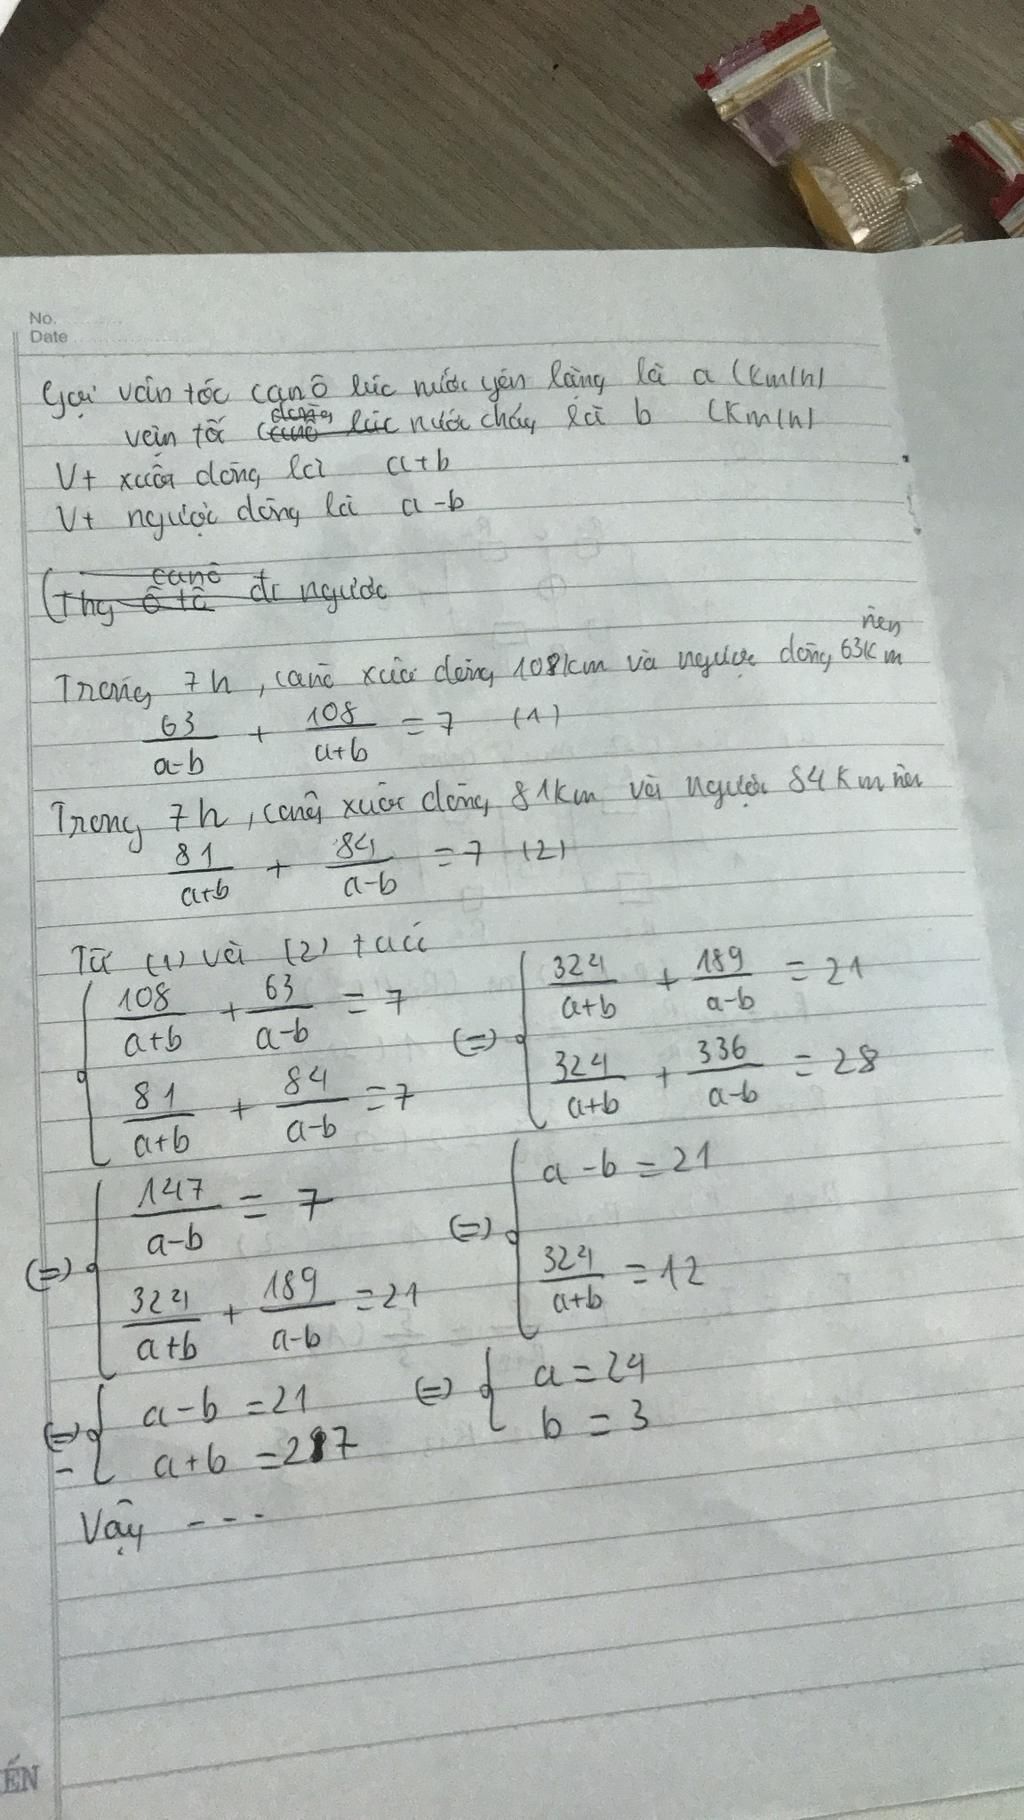 No.
Date
Gọi vận tốc canô lúc nước yên lặng là a (km/h)
vận tốc dòng nước chảy là b (km/h)
Vt xuôi dòng là a+b
Vt ngược dòng là a-b
canô
(Thg ô tô đi ngược
nên
Trong 7h, canô xuôi dòng 108km và ngược dòng 63km
63/(a-b) + 108/(a+b) = 7 (1)
Trong 7h, canô xuôi dòng 81km và ngược 84km nên
81/(a+b) + 84/(a-b) = 7 (2)
Từ (1) và (2) ta có
{ 108/(a+b) + 63/(a-b) = 7 (=) { 324/(a+b) + 189/(a-b) = 21
81/(a+b) + 84/(a-b) = 7 324/(a+b) + 336/(a-b) = 28
(=) { 147/(a-b) = 7 (=) { a-b = 21
324/(a+b) + 189/(a-b) = 21 324/(a+b) = 12
(=) { a-b = 21 (=) { a = 24
a+b = 27 b = 3
Vậy ---
ẾN